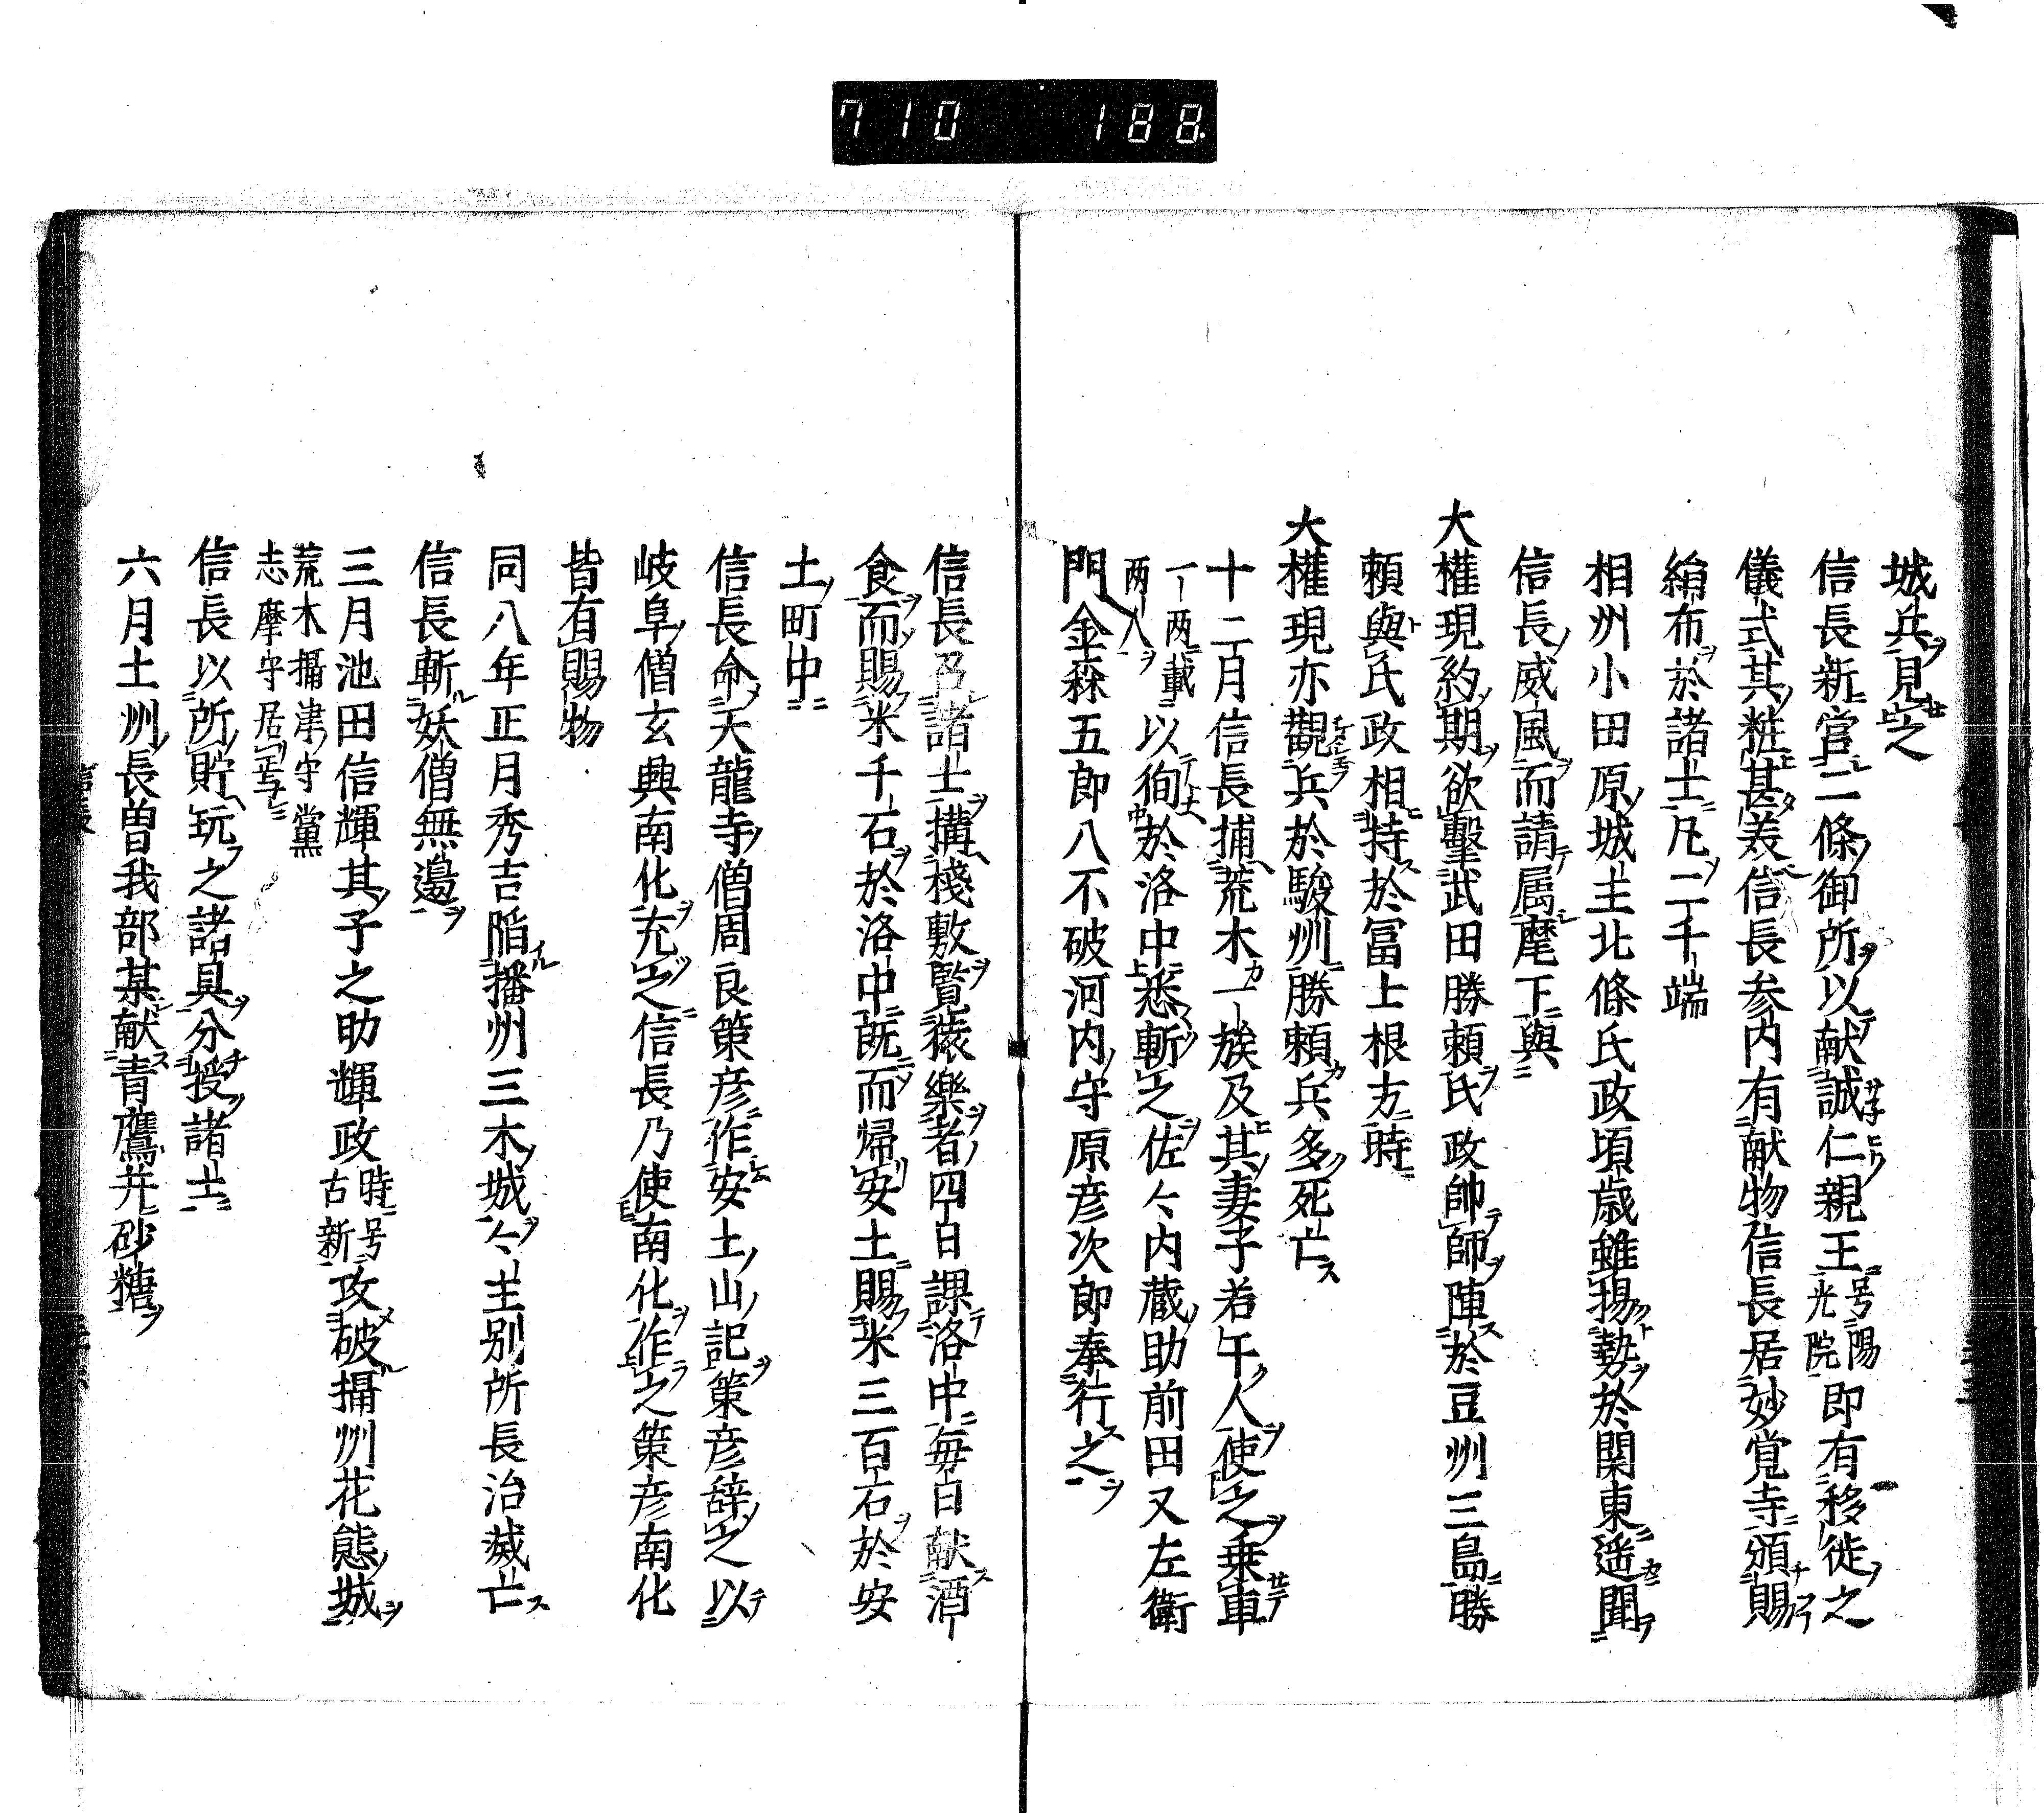 710 188
城兵見之
信長新営二條御所以献誠仁親王号陽光院即有移徙之
儀式其粧甚美信長参内有献物信長居妙覚寺頒賜
絹布於諸士凡二千端
相州小田原城主北條氏政頃歳雖揚勢於関東遥聞
信長威風而請属麾下與
大権現約期欲撃武田勝頼氏政帥師陣於豆州三島勝
頼與氏政相持於冨士根方時
大権現亦觀兵於駿州勝頼兵多死亡
十二月信長捕荒木一族及其妻子若干人使之乗車
一両載両人以徇於洛中悉斬之佐々内蔵助前田又左衛
門金森五郎八不破河内守原彦次郎奉行之
信長召諸士搆棧敷覧猿樂者四日課洛中毎日献酒
食而賜米千石於洛中既而帰安土賜米三百石於安
土町中
信長命天龍寺僧周良策彦作安土山記策彦辞之以
岐阜僧玄興南化充之信長乃使南化作之策彦南化
皆有賜物
同八年正月秀吉陥播州三木城々主別所長治滅亡
信長斬妖僧無邊
三月池田信輝其子之助輝政時号古新攻破攝州花熊城
荒木攝津守黨志摩守居
信長以所貯玩之諸具分授諸士
六月土州長曽我部某献青鷹并砂糖